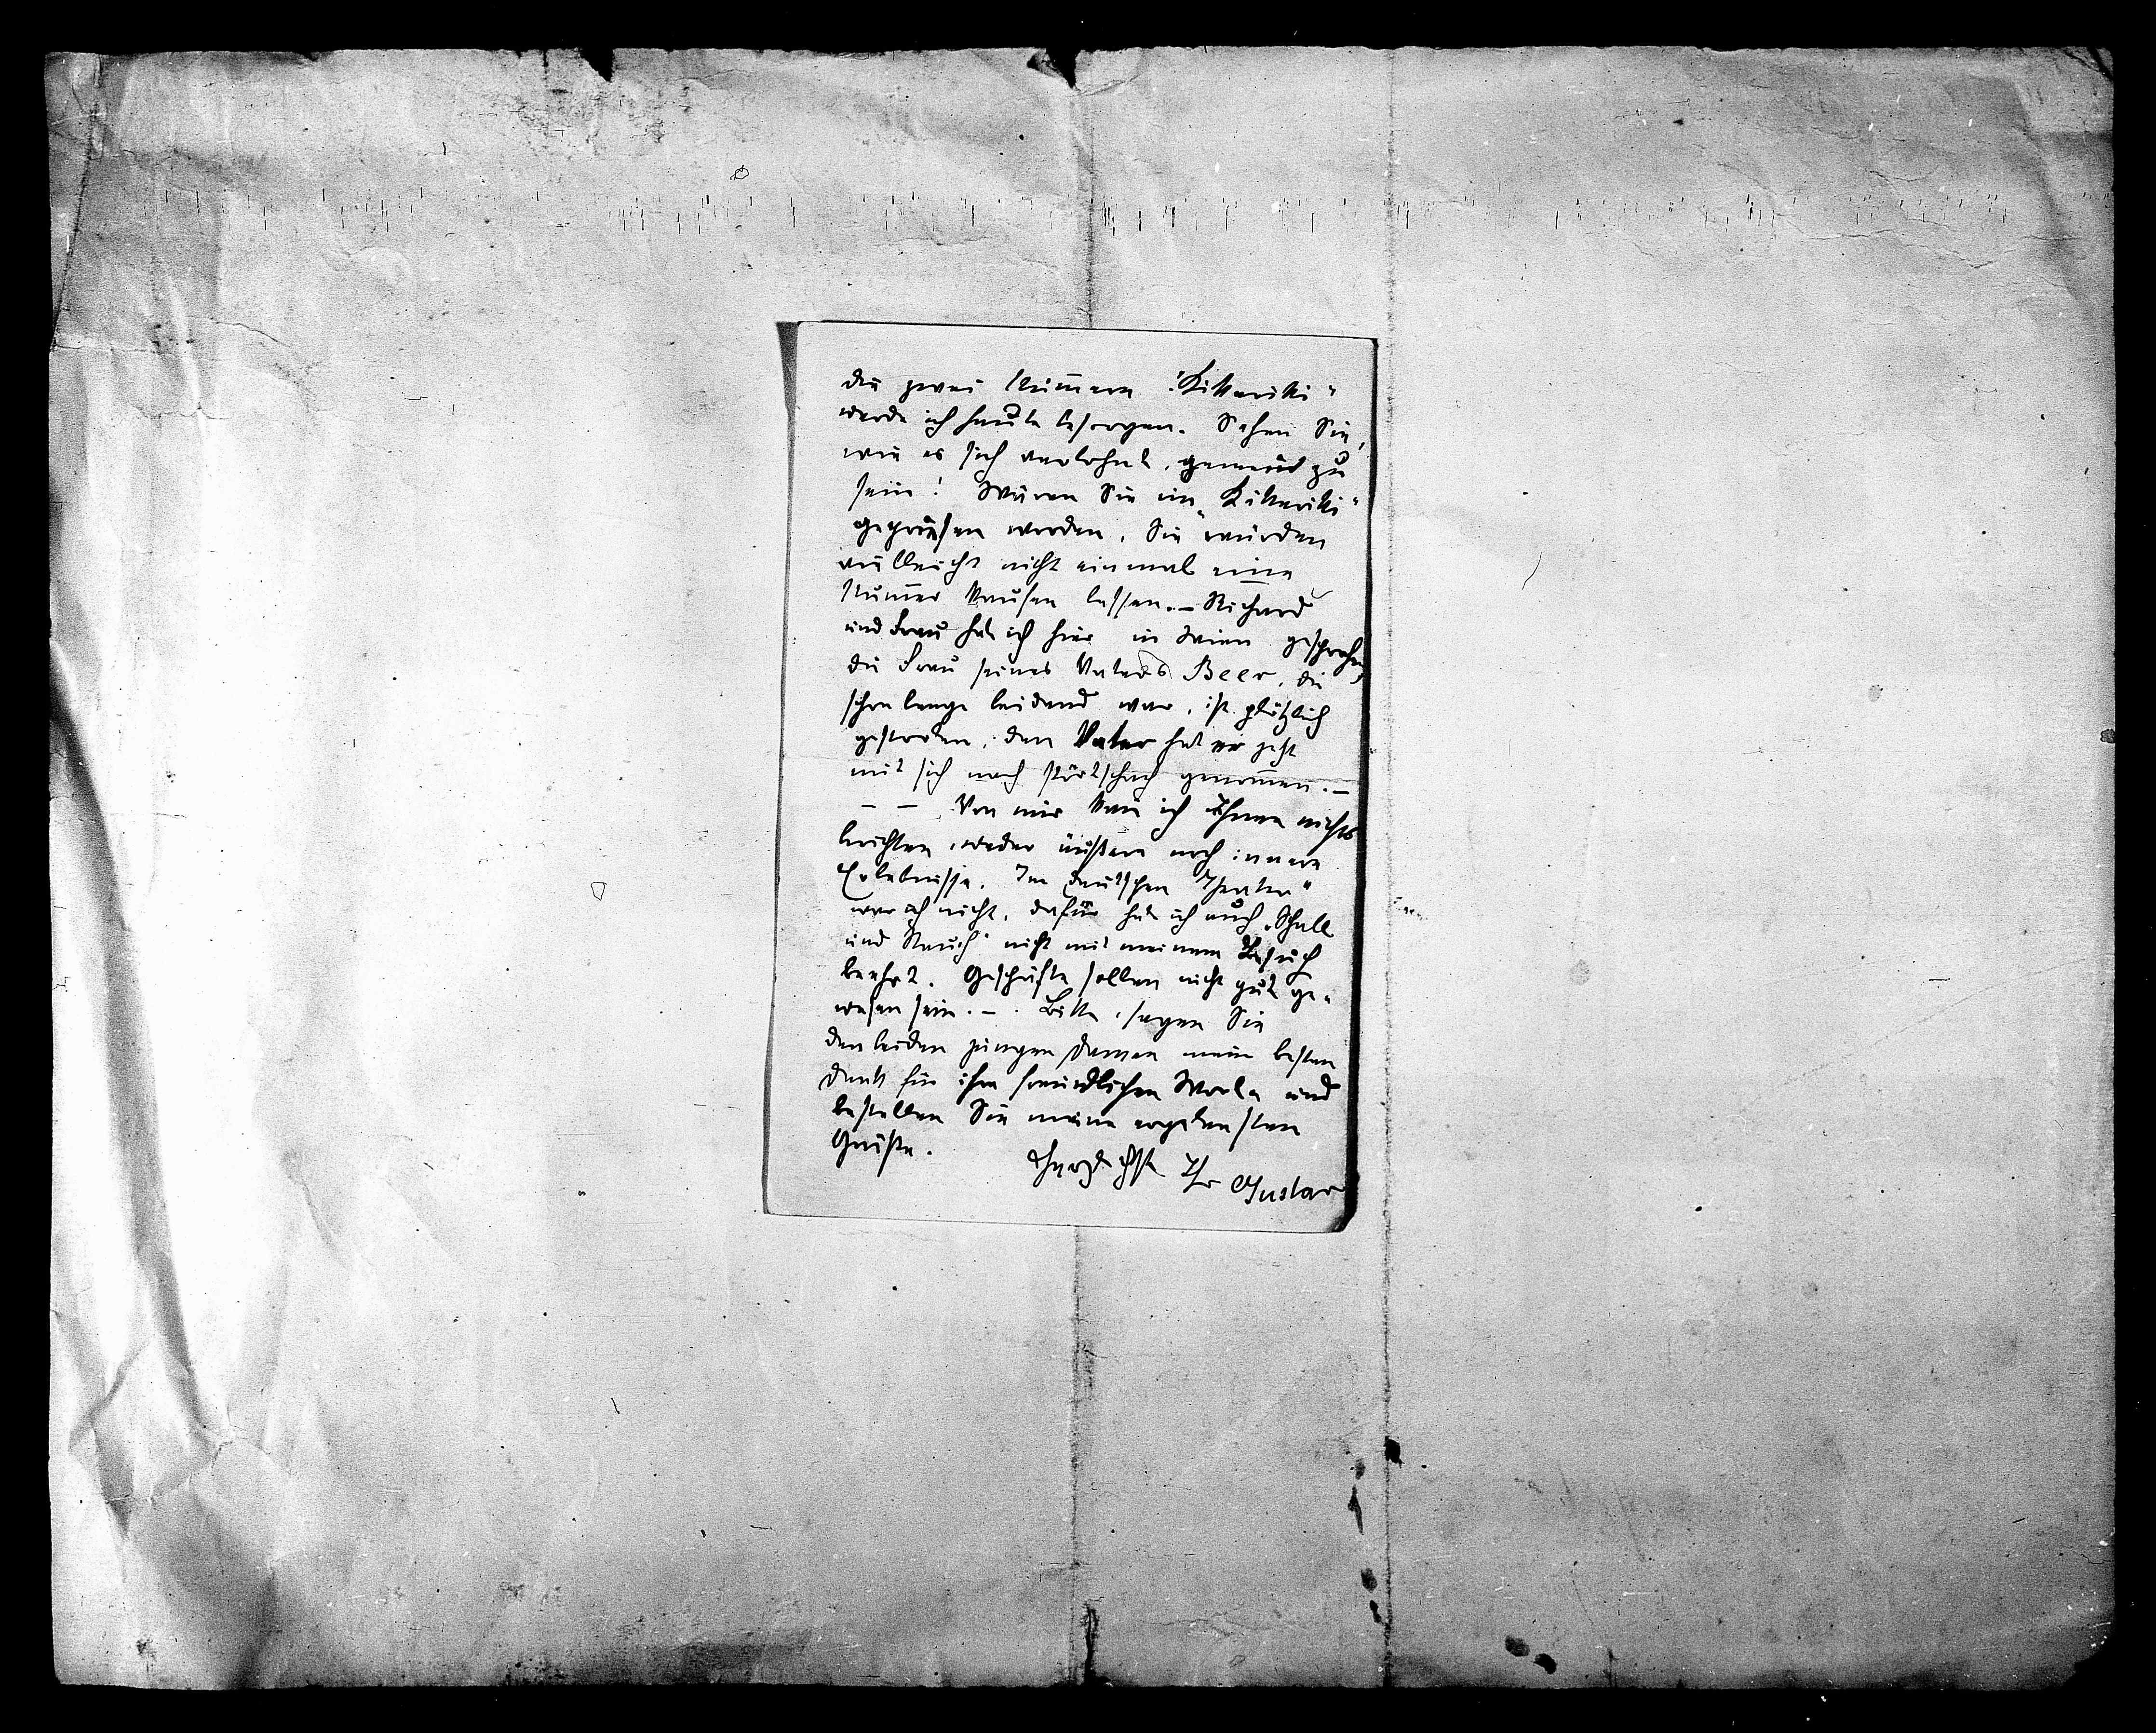 die zwei Num̅ern „Kikeriki“
werde ich heute besorgen. Sehen Sie,
wie es sich verlohnt, gemein zu
sein! Wären Sie im „Kikeriki“
gepriesen worden, Sie würden
vielleicht nicht einmal eine
Num̅er kaufen lassen. – Richard
und Frau hab ich hier in Wien gesprochen,
die Frau seines Vaters Beer, die
schon lange leidend war, ist plötzlich
gestorben, den Vater hat er jetzt
mit sich nach Pörtschach genom̅en. –
– – Von mir kan̅ ich Ihnen nichts
berichten, weder äußere noch innere
Erlebnisse. Im „Deutschen Theater“
war ich nicht, dafür hab ich auch „Schall
und Rauch“ nicht mit meinem Besuch
beehrt. Geschäfte sollen nicht gut ge-
wesen sein. – . Bitte, sagen Sie
den beiden jungen Damen mein besten
Dank für ihre freundlichen Worte und
bestellen Sie meine ergebensten
Grüße.
Herzlichst Ihr Gustav